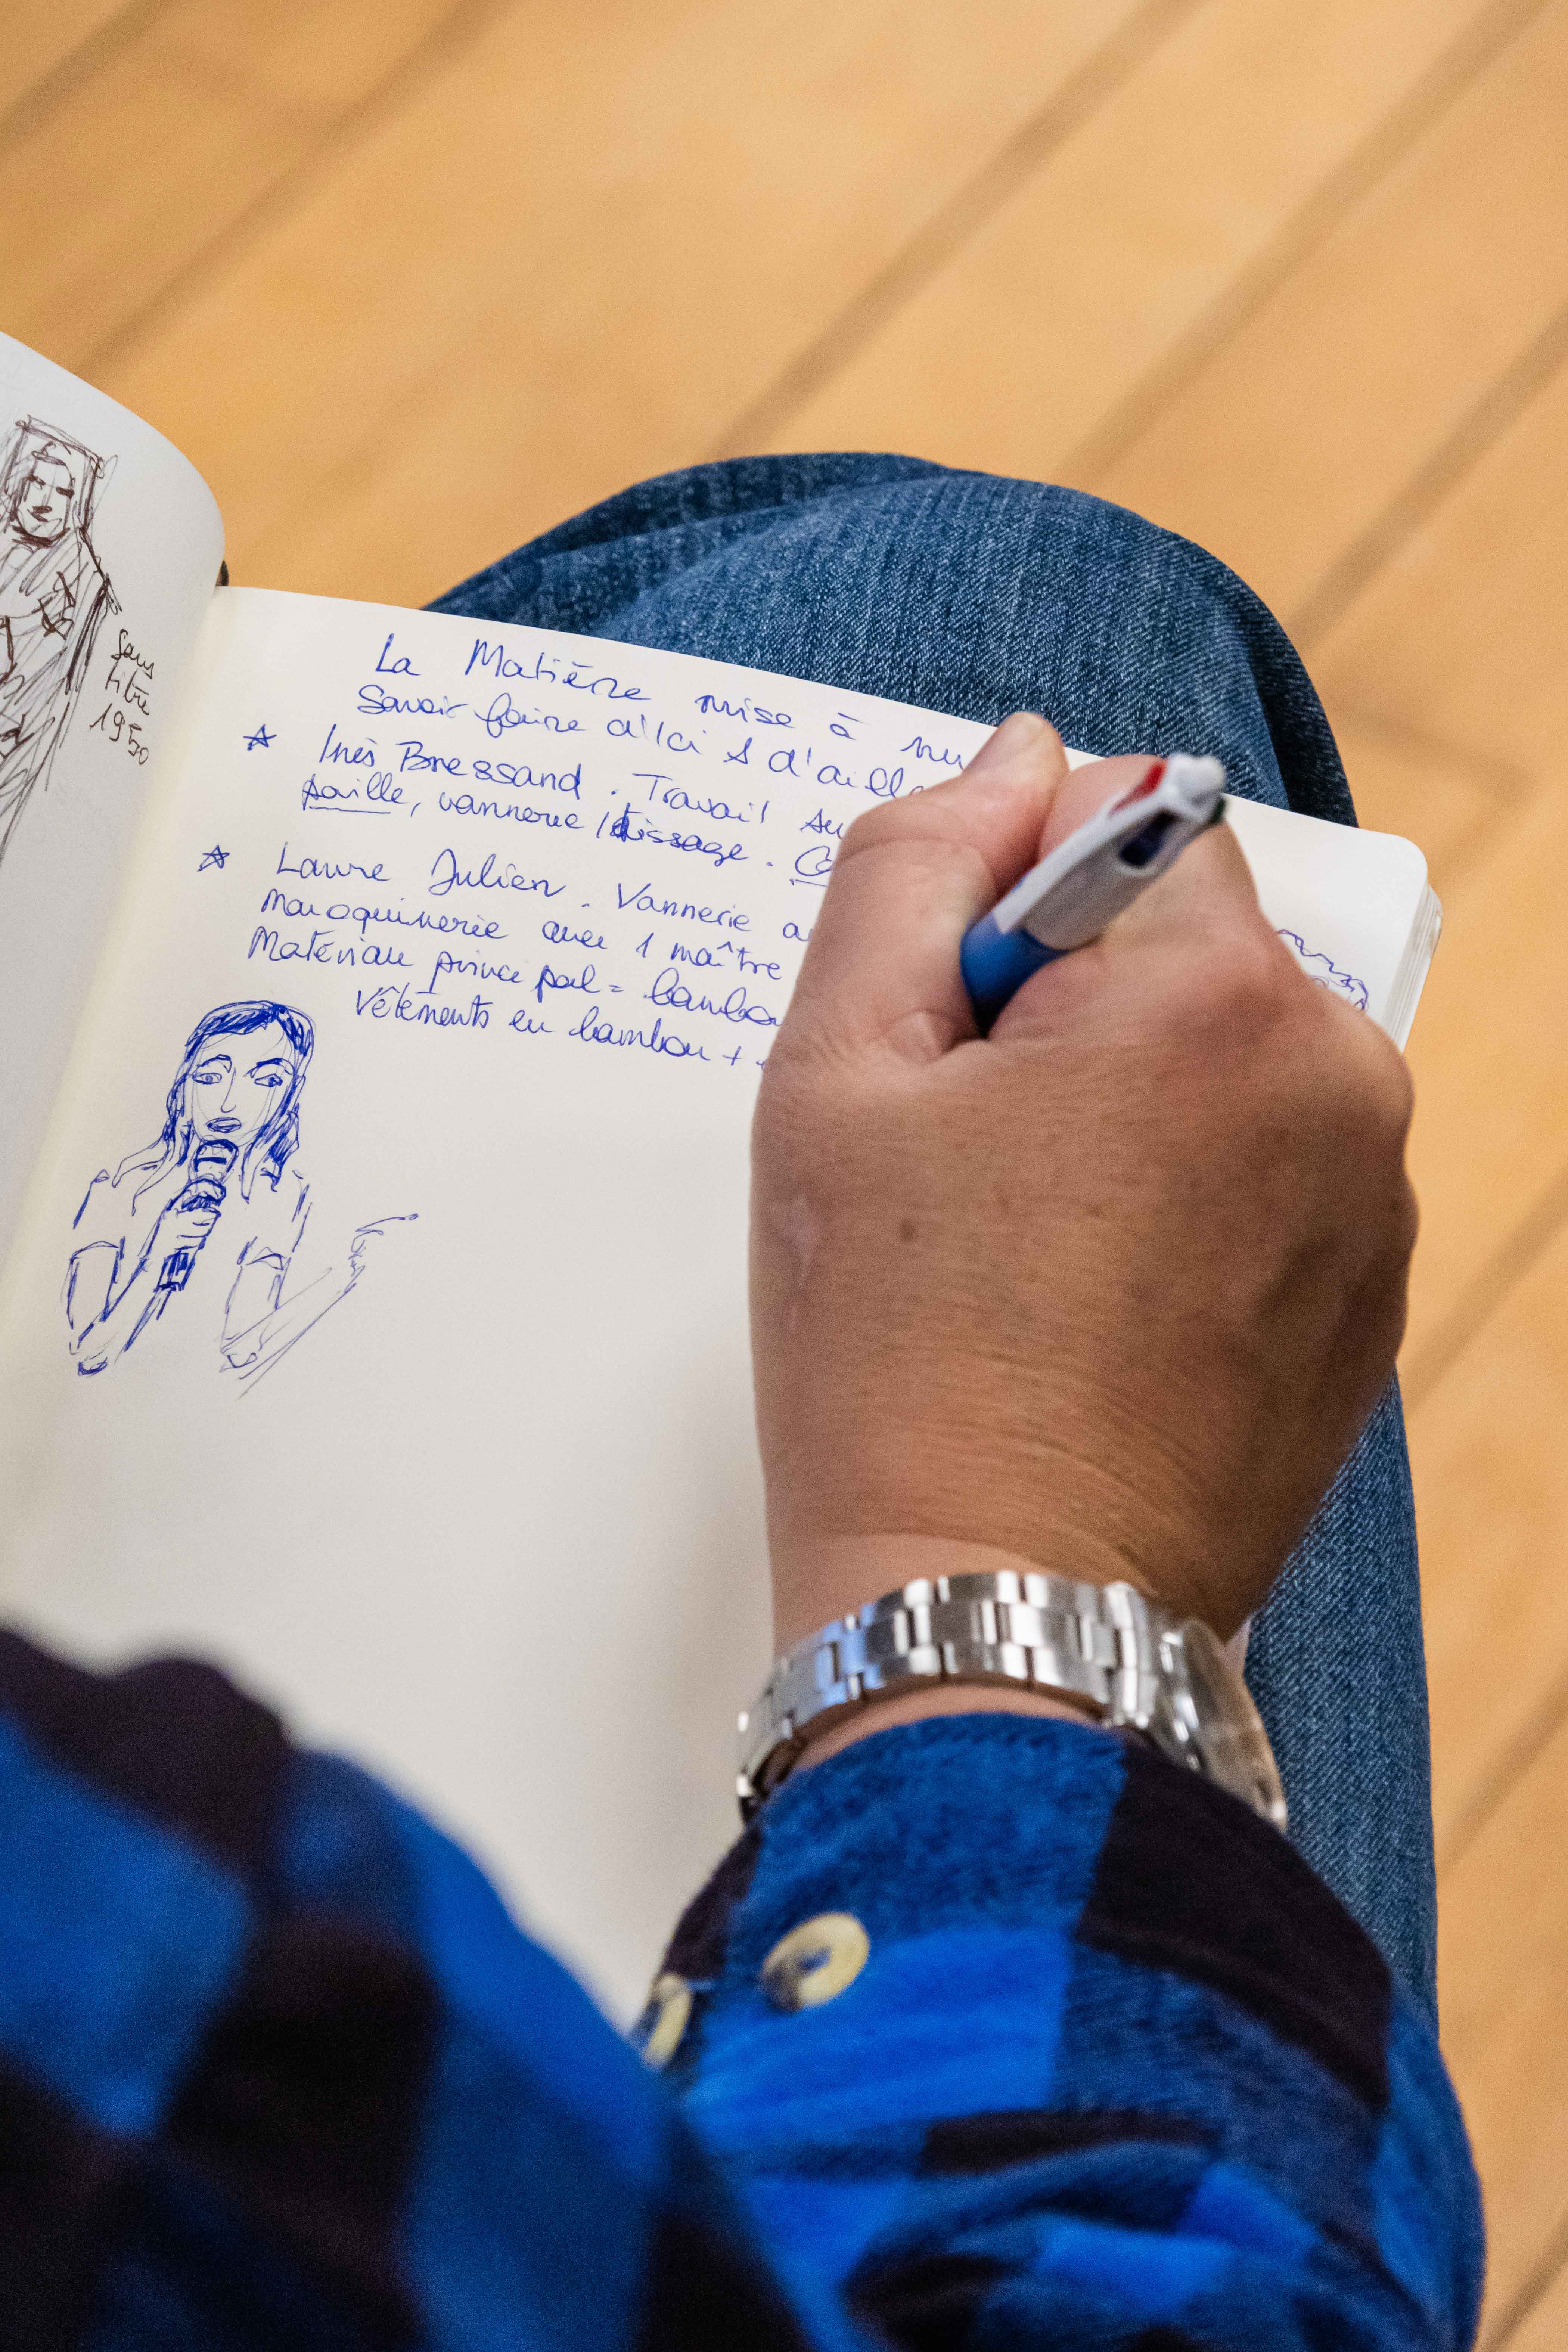 sans
titre
1950
La Matière mise à nu
Savoir faire d'ici & d'aille
☆ Inès Bressand . Travail su
paille, vannerie / tissage . Co
☆ Laure Julien . Vannerie a
maroquinerie avec 1 maître
Matériau principal = bambou
Vêtements en bambou +